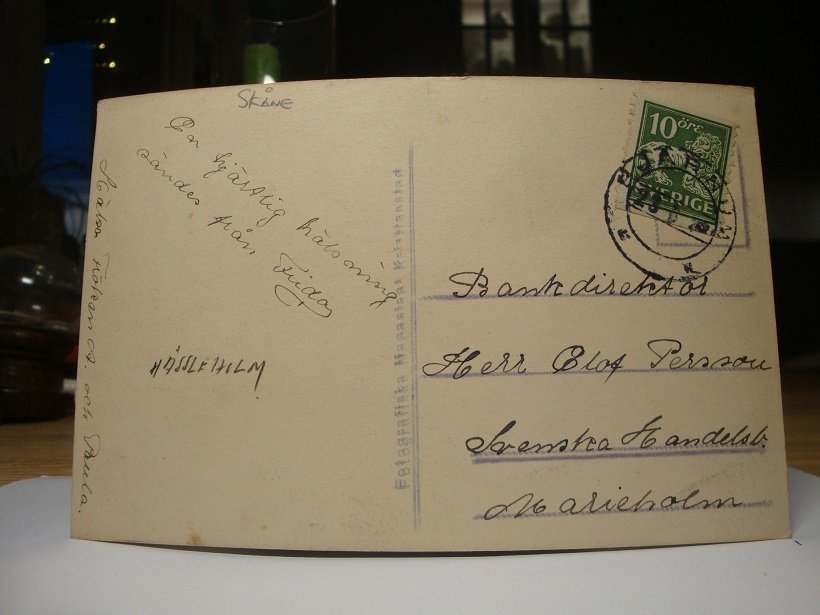 SKÅNE
En hjärtlig hälsning
sändes från Frida
Hälsa Fröken A. och Paula.
HÄSSLEHOLM
Fotografiska Magasinet Kristianstad
10 öre
SVERIGE
BJÄRNUM
23
Bankdirektör
Herr Olof Persson
Svenska Handelsb.
Marieholm